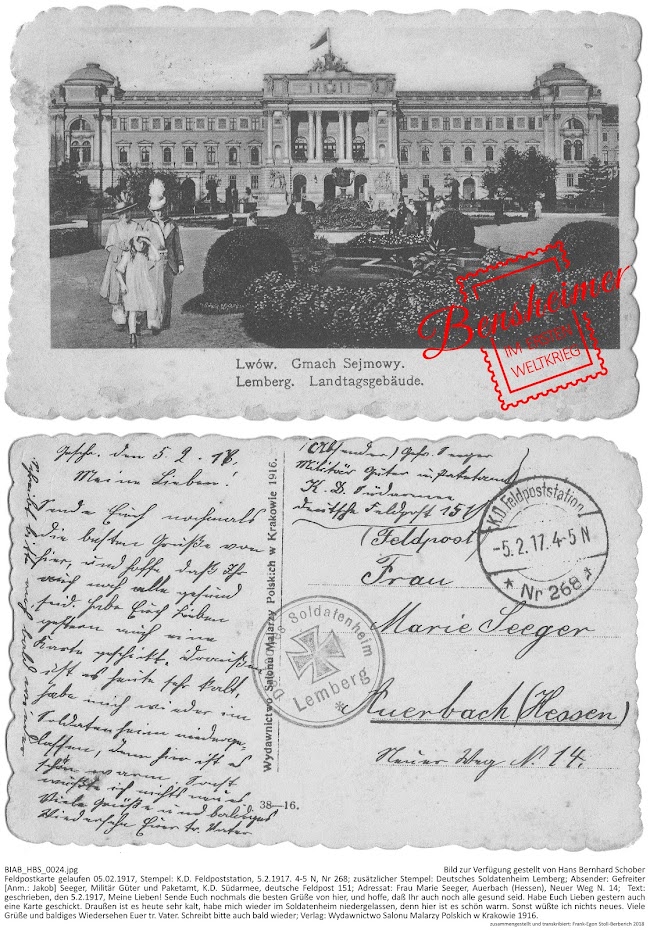 Lwów. Gmach Sejmowy.
Lemberg. Landtagsgebäude.
Bensheimer
IM ERSTEN
WELTKRIEG
Geschr. den 5.2.17.
Meine Lieben!
Sende Euch nochmals
die besten Grüße von
hier, und hoffe, daß Ihr
auch noch alle gesund
seid. Habe Euch Lieben
gestern auch eine
Karte geschickt. Draußen
ist es heute sehr kalt,
habe mich wieder im
Soldatenheim niederge-
lassen, denn hier ist es
schön warm. Sonst
wüßte ich nichts neues
Viele Grüße und baldiges
Wiedersehn Euer tr. Vater
Schreibt bitte auch bald wieder
Wydawnictwo Salonu Malarzy Polskich w Krakowie 1916.
38—16.
(Absender) Gefr. Seeger
Militär Güter u. Paketamt
K. D. Südarmee
deutsche Feldpost 151
K.D. Feldpoststation
-5.2.17. 4-5 N
* Nr 268 *
(Feldpost)
Frau
Marie Seeger
Deutsches Soldatenheim
Lemberg
Auerbach (Hessen)
Neuer Weg N. 14.
BIAB_HBS_0024.jpg
Bild zur Verfügung gestellt von Hans Bernhard Schober
Feldpostkarte gelaufen 05.02.1917, Stempel: K.D. Feldpoststation, 5.2.1917. 4-5 N, Nr 268; zusätzlicher Stempel: Deutsches Soldatenheim Lemberg; Absender: Gefreiter
[Anm.: Jakob] Seeger, Militär Güter und Paketamt, K.D. Südarmee, deutsche Feldpost 151; Adressat: Frau Marie Seeger, Auerbach (Hessen), Neuer Weg N. 14; Text:
geschrieben, den 5.2.1917, Meine Lieben! Sende Euch nochmals die besten Grüße von hier, und hoffe, daß Ihr auch noch alle gesund seid. Habe Euch Lieben gestern auch
eine Karte geschickt. Draußen ist es heute sehr kalt, habe mich wieder im Soldatenheim niedergelassen, denn hier ist es schön warm. Sonst wüßte ich nichts neues. Viele
Grüße und baldiges Wiedersehen Euer tr. Vater. Schreibt bitte auch bald wieder; Verlag: Wydawnictwo Salonu Malarzy Polskich w Krakowie 1916.
zusammengestellt und transkribiert: Frank-Egon Stoll-Berberich 2018